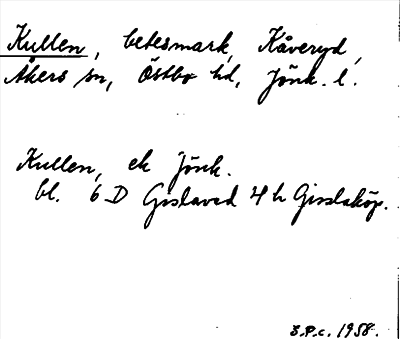 Kullen, betesmark, Kåveryd,
Åkers sn, Östbo hd, Jönk. l.
Kullen, ek Jönk.
bl. 6 D Gislaved 4 h Gisslaköp.
S.P.c. 1958.